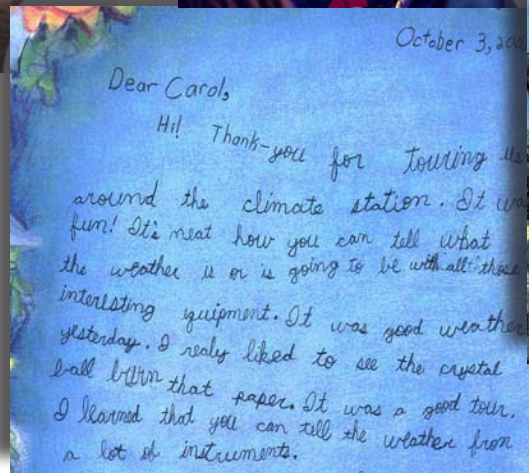 October 3, 200
Dear Carol,
Hi! Thank-you for touring us
around the climate station. It wa
fun! It's neat how you can tell what
the weather is or is going to be with all those
interesting equipment. It was good weather
yesterday. I realy liked to see the crystal
ball burn that paper. It was a good tour.
I learned that you can tell the weather from
a lot of instruments.